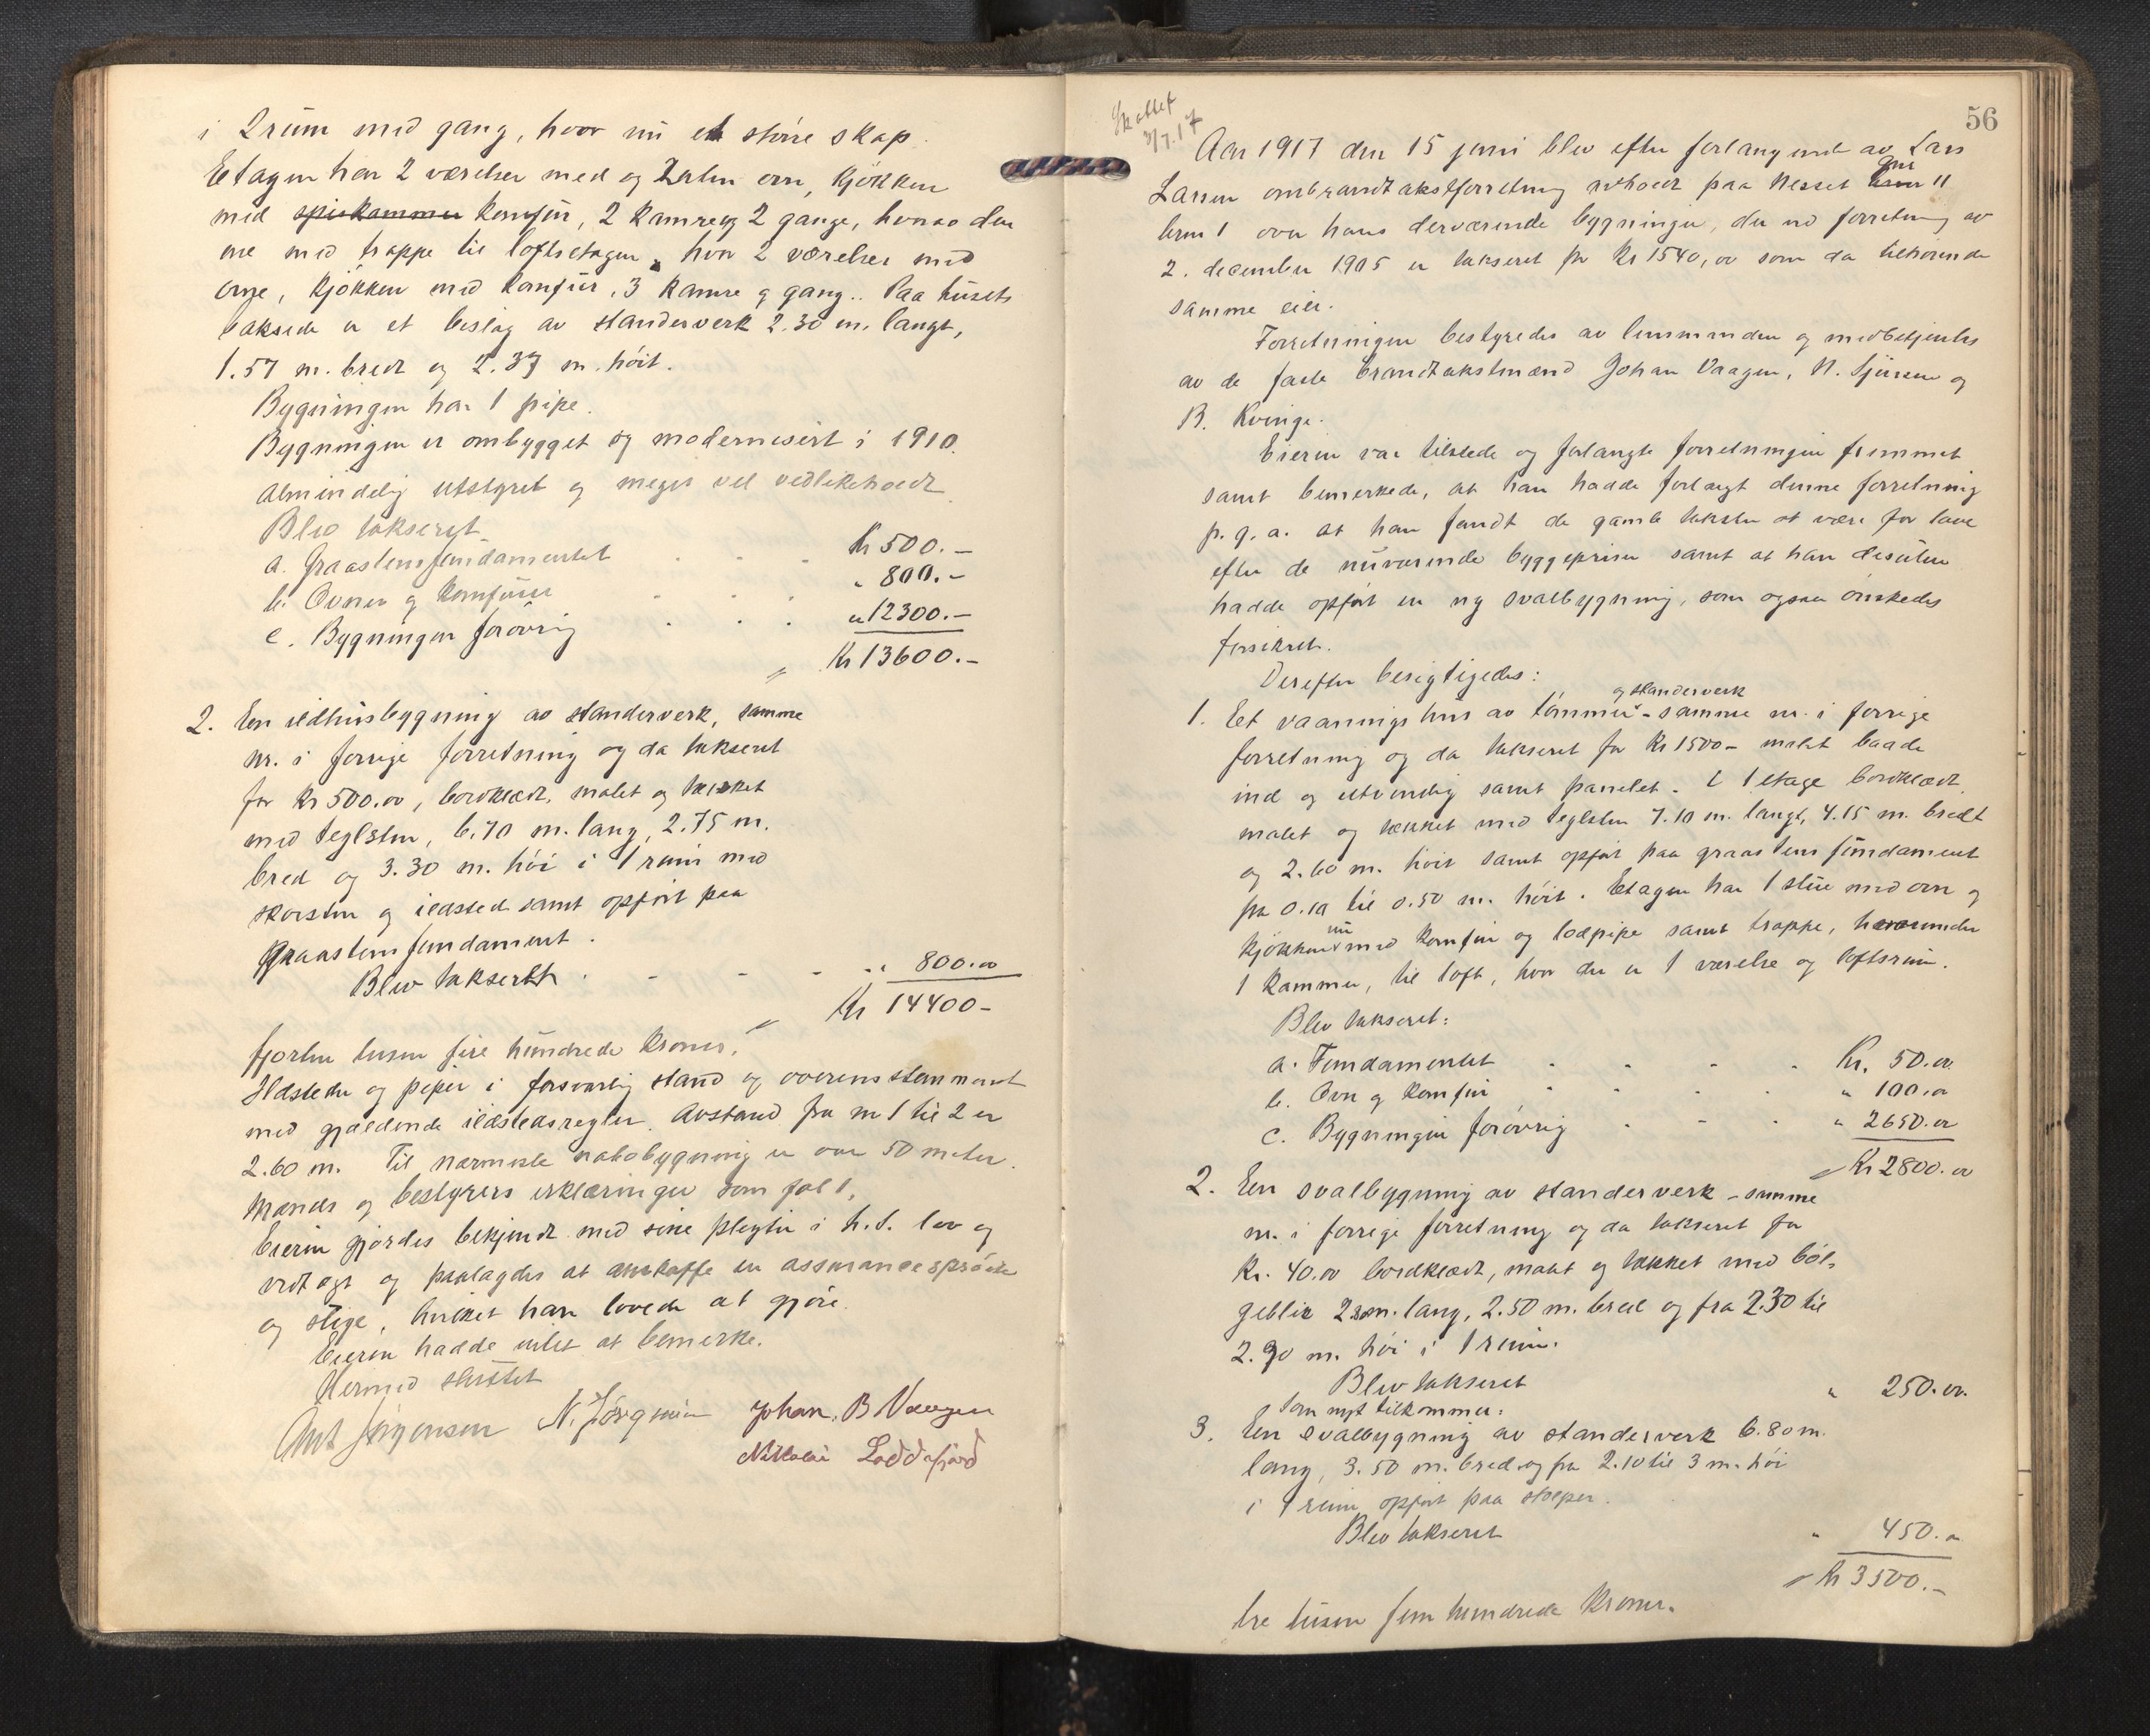 i 2 rüm med gang, hvor nü et större skap.
Etagen har 2 værelser med og uten ovn, kjökken
med spiskammer komfür, 2 kamre og 2 gange, hvorav den
ene med trappe til loftsetagen, hvor 2 værelser med
ovne, kjökken med komfür, 3 kamre og gang.. Paa hüsets
bakside er et beslag av standerverk 2.30 m. langt,
1.57 m. bredt og 2.37 m. höit.
Bygningen har 1 pipe.
Bygningen er ombygget og modernisert i 1910.
Almindelig utstyret og meget vel vedlikeholdt
Blev takseret
a. Graastensfundamentet Kr 500.-
b. Ovner og komfürer " 800.-
c. Bygningen forövrig " 12300.-
Kr 13600.-
2. En ildhüsbygning av standerverk, samme
nr. i forrige forretning og da takseret
for Kr 500.00, bordklædt, malet og tækket
med teglsten, 6.70 m. lang, 2.75 m.
bred og 3.30 m. höi i 1 rüm med
skorsten og ildsted samt opfört paa
graastensfundament.
Blev takseret " 800.00
Kr 14400-
fjorten tusen fire hündrede kroner.
Ildsteder og piper i forsvarlig stand og overensstemmende
med gjældende ildstedsregler. Avstand fra nr 1 til 2 er
2.60 m. Til nærmeste nabobygning er over 50 meter.
Mænds og bestyrers erklæringer som fol 1.
Eieren gjordes bekjendt med sine plegter i h.t. lov og
vedtægt og paalagdes at anskaffe en assuransespröite
og stige, hvilket han lovede at gjöre.
Eieren hadde intet at bemerke.
Hermed slüttet
Ant Jörgensen N. Jörgensen Johan. B Vaagen
Nikolai Loddefjord
56
Skattet
3/7.17
Aar 1917 den 15 juni blev efter forlangende av Lars
Larsen ombrandtakstforretning avholdt paa Nesset gnr 11
brn 1 over hans derværende bygninger, der ved forretning av
2. december 1905 er takseret for Kr 1540,00 som da tilhörende
samme eier.
Forretningen bestyredes av lensmanden og medbetjentes
av de faste brandtakstmænd Johan Vaagen, N. Sjursen og
B. Kvinge.
Eieren var tilstede og forlangte forretningen fremmet
samt bemerkede, at han hadde forlangt denne forretning
p. g. a. at han fandt de gamle takster at være for lave
efter de nüværende byggepriser samt at han desüten
hadde opfört en ny svalbygning, som ogsaa önskedes
forsikret.
Derefter besigtigedes:
1. Et vaaningshüs av tömmer og standerverk - samme nr. i forrige
forretning og da takseret for Kr 1500- malet baade
ind og utvendig samt panelet. I 1 etage bordklædt,
malet og tækket med teglsten 7.10 m. langt, 4.15 m. bredt
og 2.60 m. höit samt opfört paa graastensfündament
fra 0.10 til 0.50 m. höit. Etagen har 1 stüe med ovn og
kjökken nü med komfür og lodpipe samt trappe, hvorunder
1 kammer, til loft, hvor der er 1 værelse og loftsrüm.
Blev takseret:
a. Fundamentet Kr. 50.00
b. Ovn og komfür " 100.00
c. Bygningen forövrig " 2650.00
Kr 2800.00
2. En svalbygning av standerverk - samme
nr. i forrige forretning og da takseret for
Kr. 40.00 bordklædt, malet og tækket med böl-
geblik 2 m. lang, 2.50 m. bred og fra 2.30 til
2.90 m. höi i 1 rüm.
Blev takseret " 250.00.
Som nyt tilkommer:
3. En svalbygning av standerverk 6.80 m.
lang, 3.50 m. bred og fra 2.10 til 3 m. höi
i 1 rüm opfört paa stolper.
Blev takseret " 450.00
Kr 3500.-
tre tüsen fem hundrede kroner.